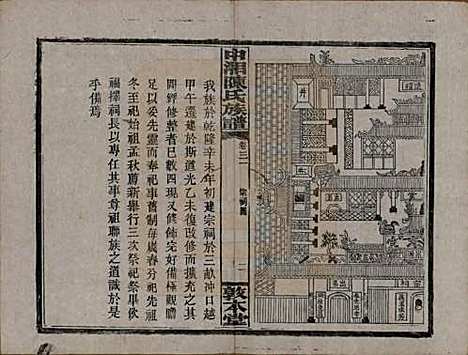 中湘陳氏族譜
卷三
祠圖
二
敦本堂
我族於乾隆辛未年初建宗祠於三畝冲口越
甲午遷建於斯道光乙未復改而擴充之其
間經修整者已數四現又修飾完好備極觀瞻
足以妥先靈而奉祀事舊制每歲春分祀先祖
冬至祀始祖孟秋薦新舉行三次祭祀祭畢飲
福擇祠長以專任其事尊祖聯族之道識於是
乎備焉